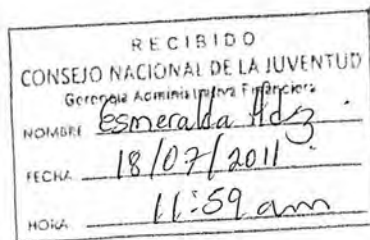 RECIBIDO
CONSEJO NACIONAL DE LA JUVENTUD
Gerencia Administrativa Financiera
NOMBRE Esmeralda Hdz.
FECHA 18/07/2011.
HORA 11:59 am